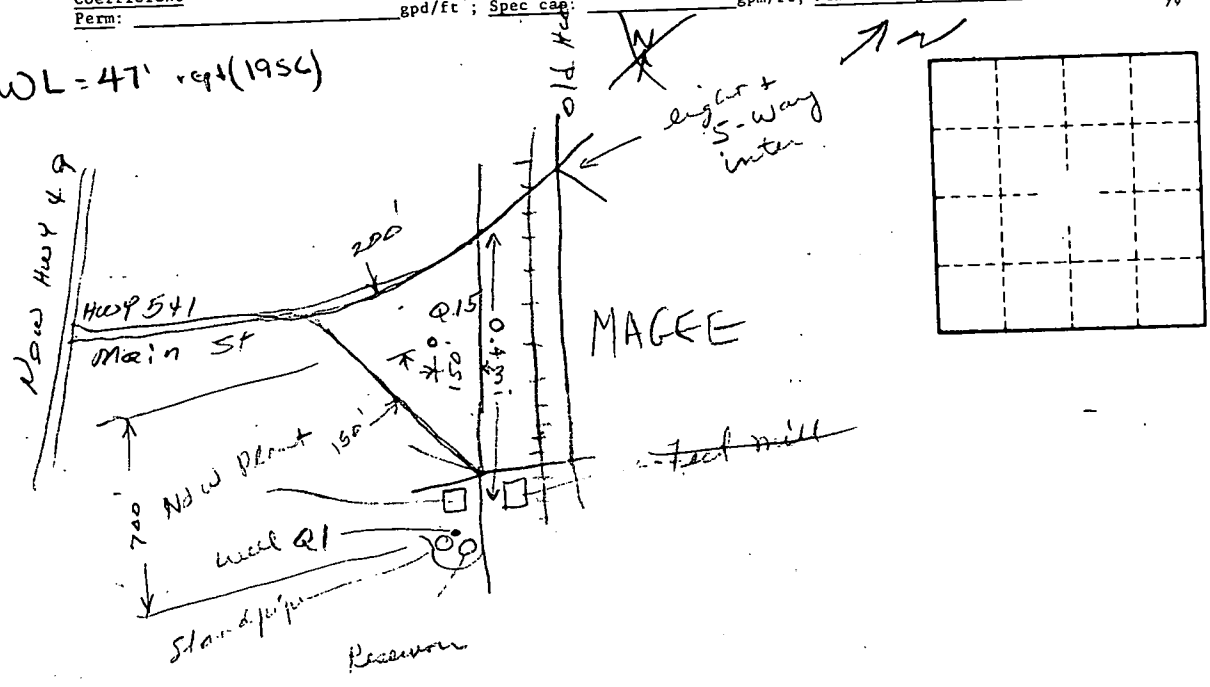 Coefficient
Perm: gpd/ft ; Spec cap: gpm/ft;
WL = 47' rept (1956)
Old Hwy
N
N
light +
5-way
inter
New Hwy 49
200'
Hwy 541
Main St
Q15
150'
0.43
MAGEE
Feed mill
150'
New Plant
700
well Q1
Standpipe
Reservoir